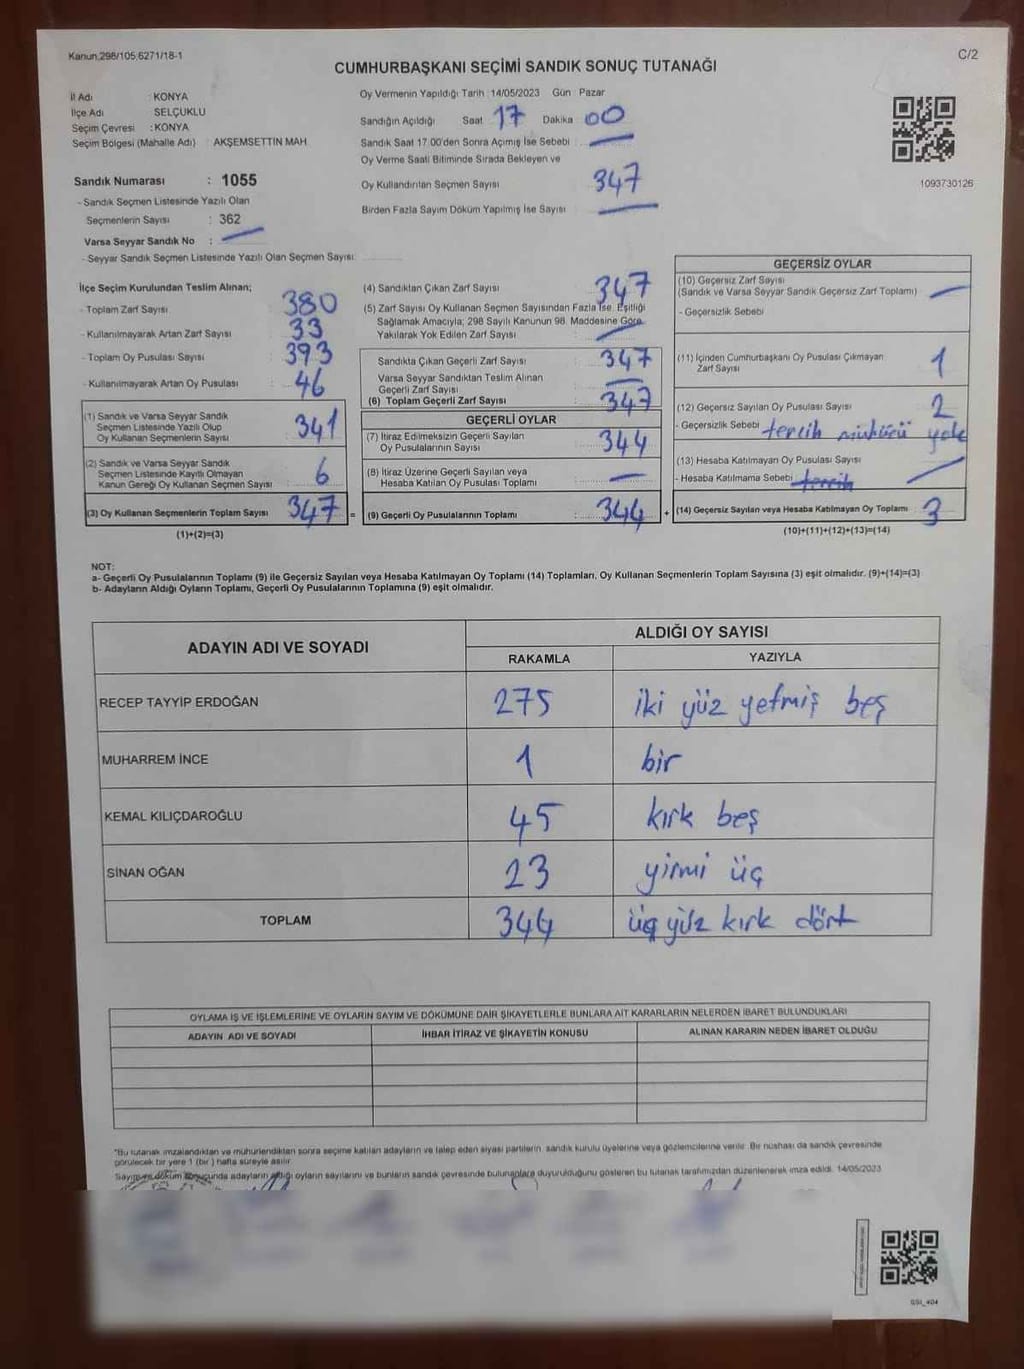 Kanun;298/105;6271/18-1
C/2
CUMHURBAŞKANI SEÇİMİ SANDIK SONUÇ TUTANAĞI
İl Adı : KONYA
İlçe Adı SELÇUKLU
Seçim Çevresi : KONYA
Seçim Bölgesi (Mahalle Adı) : AKŞEMSETTİN MAH.
Sandık Numarası : 1055
- Sandık Seçmen Listesinde Yazılı Olan
Seçmenlerin Sayısı : 362
Varsa Seyyar Sandık No :
- Seyyar Sandık Seçmen Listesinde Yazılı Olan Seçmen Sayısı:
Oy Vermenin Yapıldığı Tarih : 14/05/2023 Gün : Pazar
Sandığın Açıldığı Saat 17 Dakika 00
Sandık Saat 17.00'den Sonra Açımış İse Sebebi :
Oy Verme Saati Bitiminde Sırada Bekleyen ve
Oy Kullandırılan Seçmen Sayısı 347
Birden Fazla Sayım Döküm Yapılmış İse Sayısı
1093730126
İlçe Seçim Kurulundan Teslim Alınan;
- Toplam Zarf Sayısı : 380
- Kullanılmayarak Artan Zarf Sayısı : 33
- Toplam Oy Pusulası Sayısı : 393
- Kullanılmayarak Artan Oy Pusulası : 46
(1) Sandık ve Varsa Seyyar Sandık
Seçmen Listesinde Yazılı Olup
Oy Kullanan Seçmenlerin Sayısı : 341
(2) Sandık ve Varsa Seyyar Sandık
Seçmen Listesinde Kayıtlı Olmayan
Kanun Gereği Oy Kullanan Seçmen Sayısı : 6
(3) Oy Kullanan Seçmenlerin Toplam Sayısı 347 =
(1)+(2)=(3)
(4) Sandıktan Çıkan Zarf Sayısı : 347
(5) Zarf Sayısı Oy Kullanan Seçmen Sayısından Fazla İse, Eşitliği
Sağlamak Amacıyla; 298 Sayılı Kanunun 98. Maddesine Göre
Yakılarak Yok Edilen Zarf Sayısı :
Sandıkta Çıkan Geçerli Zarf Sayısı : 347
Varsa Seyyar Sandıktan Teslim Alınan
Geçerli Zarf Sayısı
(6) Toplam Geçerli Zarf Sayısı : 347
GEÇERLİ OYLAR
(7) İtiraz Edilmeksizin Geçerli Sayılan
Oy Pusulalarının Sayısı : 344
(8) İtiraz Üzerine Geçerli Sayılan veya
Hesaba Katılan Oy Pusulası Toplamı :
(9) Geçerli Oy Pusulalarının Toplamı : 344 +
GEÇERSİZ OYLAR
(10) Geçersiz Zarf Sayısı
(Sandık ve Varsa Seyyar Sandık Geçersiz Zarf Toplamı) :
- Geçersizlik Sebebi
(11) İçinden Cumhurbaşkanı Oy Pusulası Çıkmayan
Zarf Sayısı : 1
(12) Geçersiz Sayılan Oy Pusulası Sayısı : 2
- Geçersizlik Sebebi tercih mühürü yok
(13) Hesaba Katılmayan Oy Pusulası Sayısı :
- Hesaba Katılmama Sebebi tercih
(14) Geçersiz Sayılan veya Hesaba Katılmayan Oy Toplamı : 3
(10)+(11)+(12)+(13)=(14)
NOT:
a- Geçerli Oy Pusulalarının Toplamı (9) ile Geçersiz Sayılan veya Hesaba Katılmayan Oy Toplamı (14) Toplamları, Oy Kullanan Seçmenlerin Toplam Sayısına (3) eşit olmalıdır. (9)+(14)=(3)
b- Adayların Aldığı Oyların Toplamı, Geçerli Oy Pusulalarının Toplamına (9) eşit olmalıdır.
ADAYIN ADI VE SOYADI
ALDIĞI OY SAYISI
RAKAMLA YAZIYLA
RECEP TAYYİP ERDOĞAN 275 iki yüz yetmiş beş
MUHARREM İNCE 1 bir
KEMAL KILIÇDAROĞLU 45 kırk beş
SİNAN OĞAN 23 yirmi üç
TOPLAM 344 üç yüz kırk dört
OYLAMA İŞ VE İŞLEMLERİNE VE OYLARIN SAYIM VE DÖKÜMÜNE DAİR ŞİKAYETLERLE BUNLARA AİT KARARLARIN NELERDEN İBARET BULUNDUKLARI
ADAYIN ADI VE SOYADI İHBAR İTİRAZ VE ŞİKAYETİN KONUSU ALINAN KARARIN NEDEN İBARET OLDUĞU
*Bu tutanak imzalandıktan ve mühürlendikten sonra seçime katılan adayların ve talep eden siyasi partilerin sandık kurulu üyelerine veya gözlemcilerine verilir. Bir nüshası da sandık çevresinde
görülecek bir yere 1 (bir) hafta süreyle asılır.
Sayım ve döküm sonucunda adayların aldığı oyların sayılarını ve bunların sandık çevresinde bulunanlara duyurulduğunu gösteren bu tutanak tarafımızdan düzenlenerek imza edildi. 14/05/2023